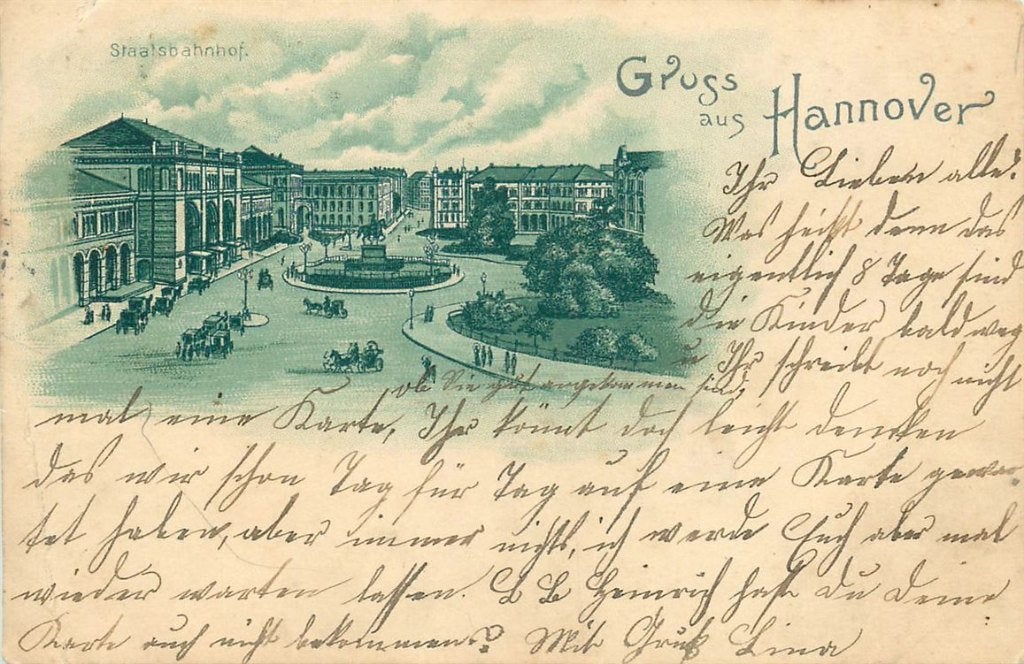 Staatsbahnhof.
Gruss
aus Hannover
Ihr Lieben alle!
Was heißt denn das
eigentlich 8 Tage sind
die Kinder bald weg
u Ihr schreibt noch nicht
ob Sie gut angekommen sind,
mal eine Karte, Ihr könnt doch leicht dencken
das wir schon Tag für Tag auf eine Karte gewar
tet haben, aber immer nichts, ich werde Euch aber mal
wieder warten lassen. L B Heinrich hast Du Deine
Karte auch nicht bekommen? Mit Gruß Lina